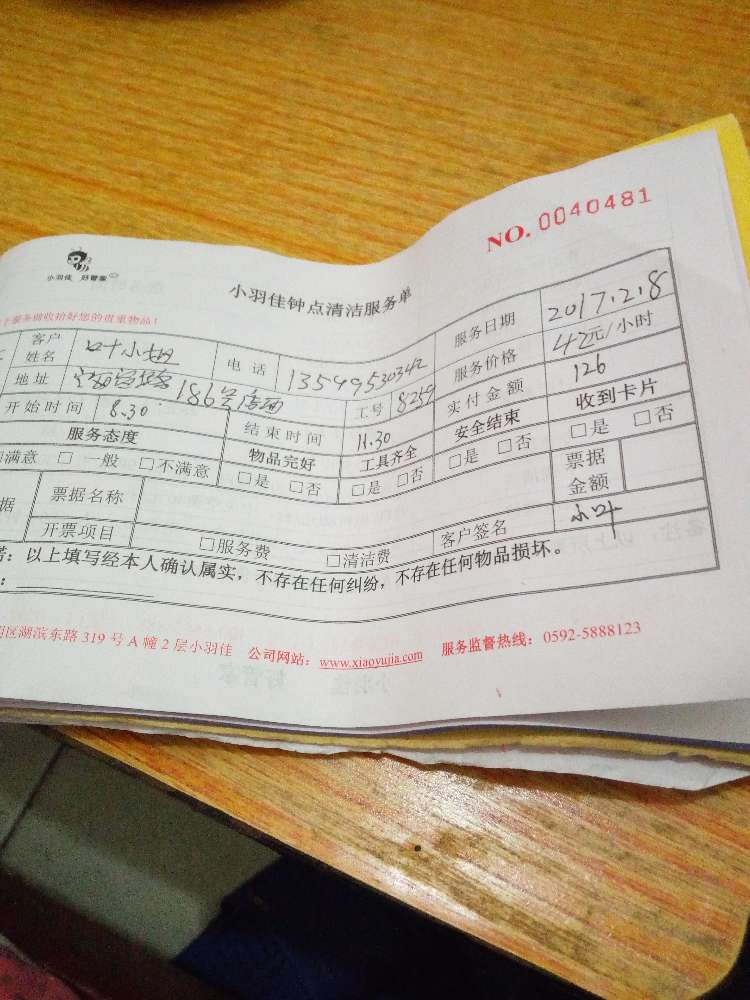 NO. 0040481
小羽佳 好管家
小羽佳钟点清洁服务单
服务前收拾好您的贵重物品！
客户姓名 叶小姐 电话 13549530342 服务日期 2017.2.8
地址 186号店面 工号 8259 服务价格 42元/小时
开始时间 8.30 结束时间 11.30 实付金额 126
服务态度 物品完好 工具齐全 安全结束 收到卡片
满意 □ 一般 □不满意 □是 □否 □是 □否 □是 □否 □是 □否
据 票据名称 票据金额
开票项目 □服务费 □清洁费 客户签名 小叶
：以上填写经本人确认属实，不存在任何纠纷，不存在任何物品损坏。
区湖滨东路 319 号 A 幢 2 层小羽佳 公司网站：www.xiaoyujia.com 服务监督热线：0592-5888123